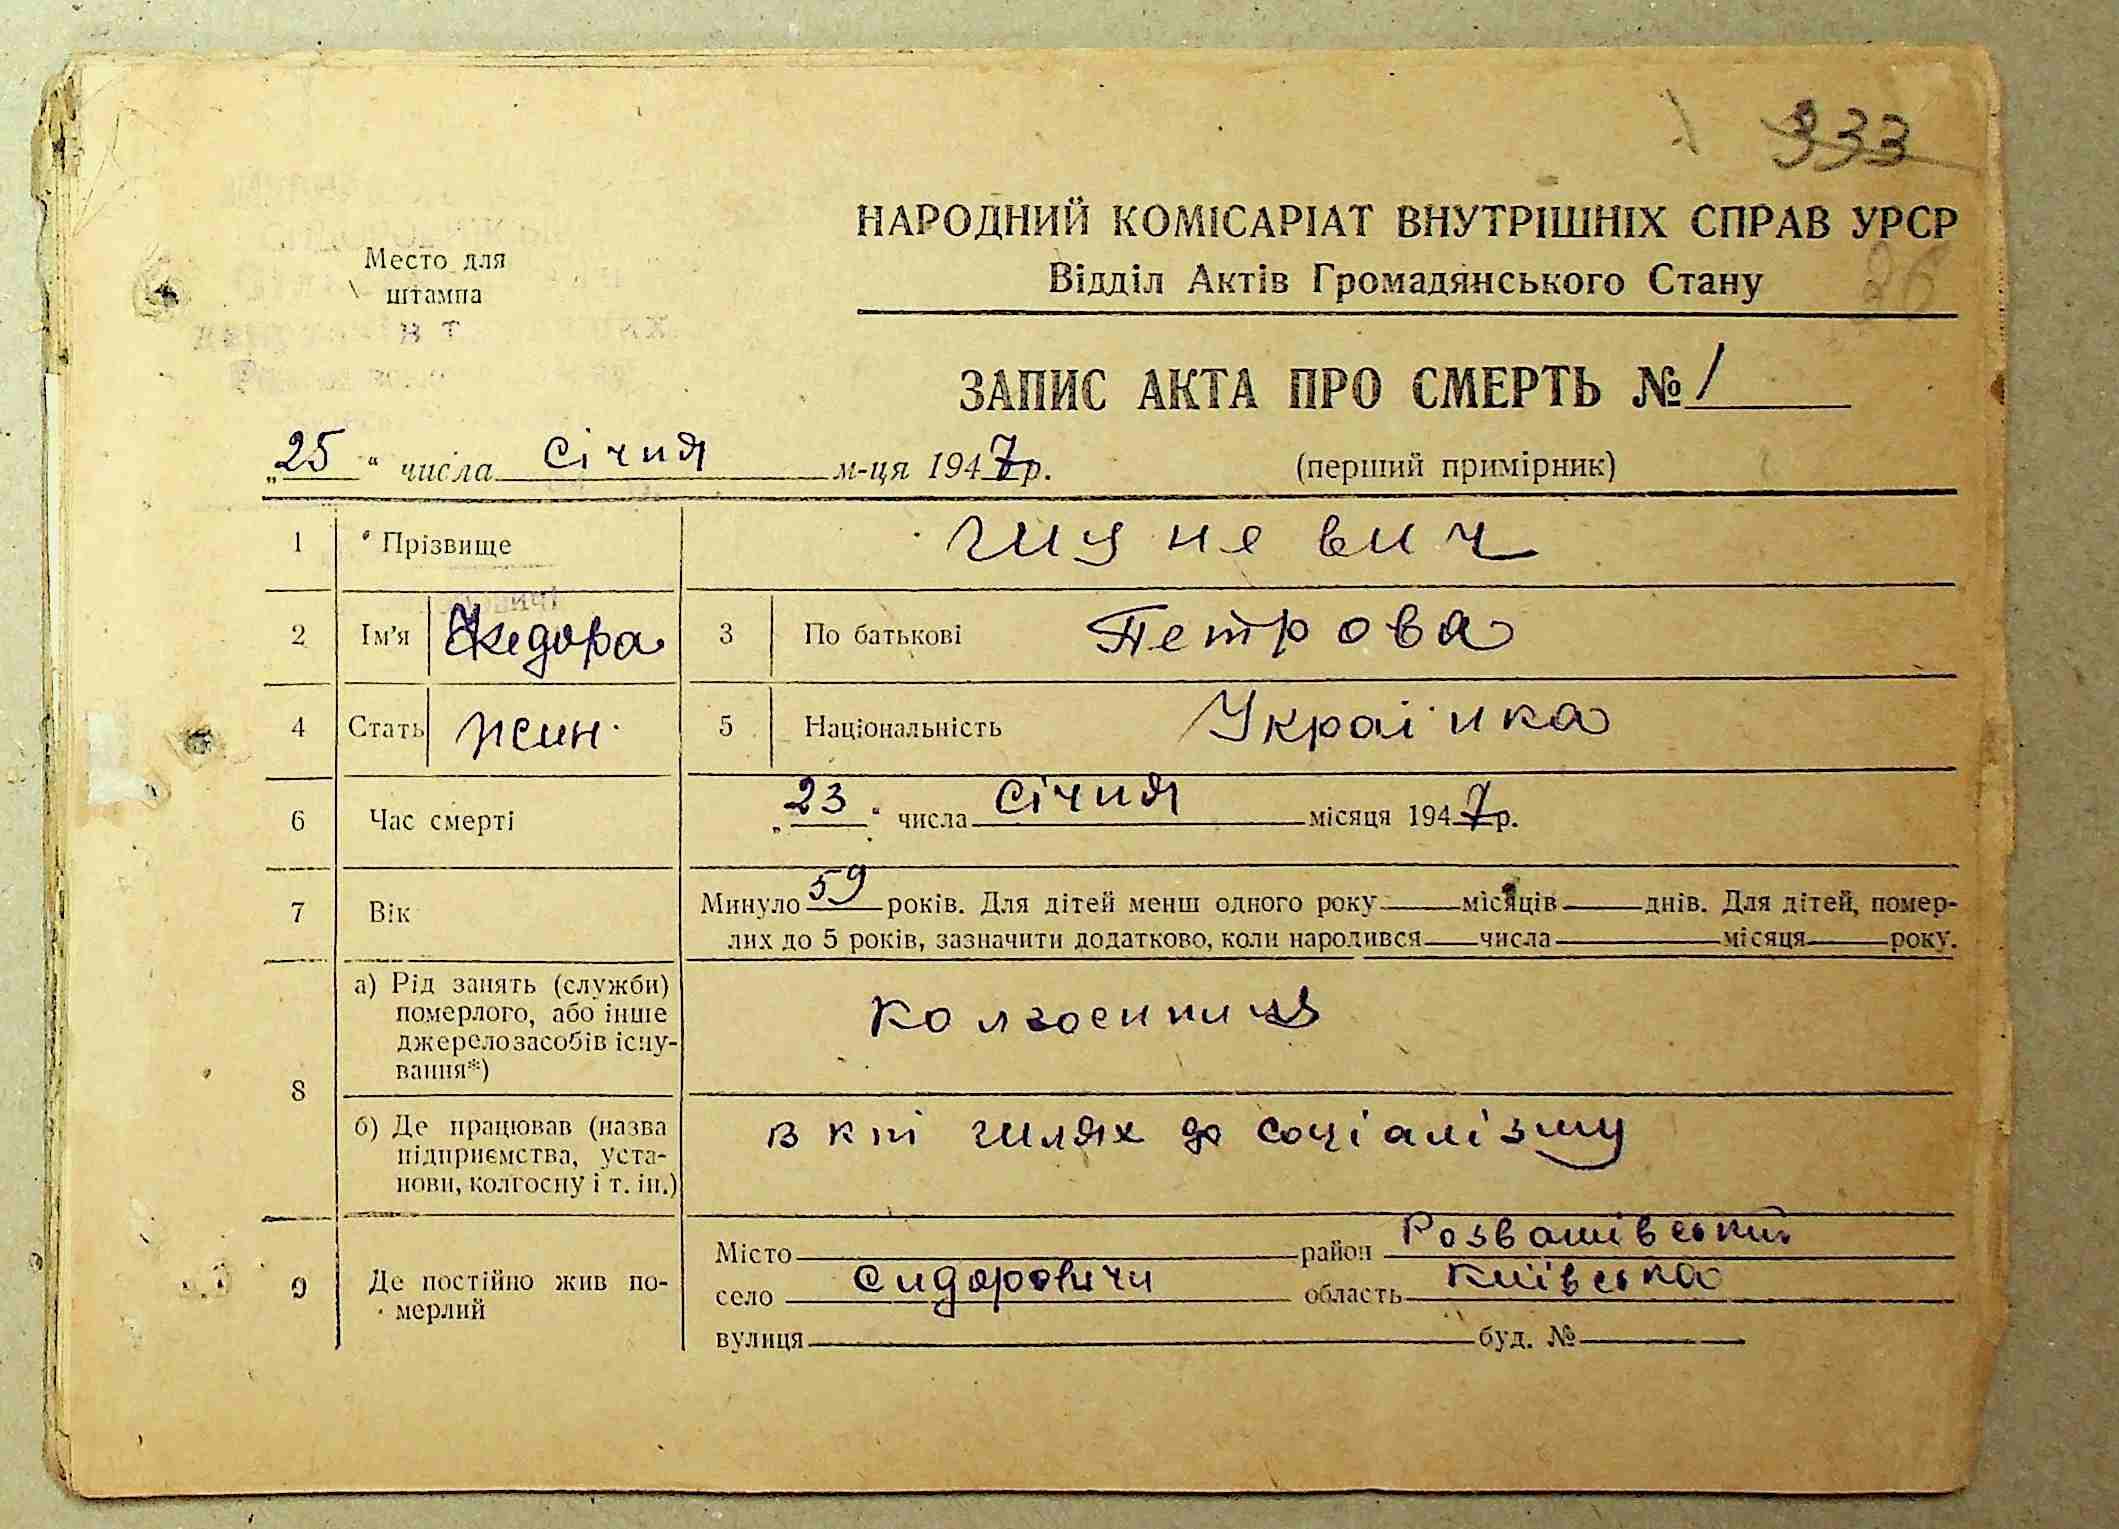 333
НАРОДНИЙ КОМІСАРІАТ ВНУТРІШНІХ СПРАВ УРСР
Відділ Актів Громадянського Стану
26
Место для
штампа
ЗАПИС АКТА ПРО СМЕРТЬ № 1
„25“ числа січня м-ця 1947 р. (перший примірник)
1 Прізвище Шуневич
2 Ім'я Хведора 3 По батькові Петрова
4 Стать жін. 5 Національність Українка
6 Час смерті „23“ числа січня місяця 1947 р.
7 Вік Минуло 59 років. Для дітей менш одного року місяців днів. Для дітей, помер-
лих до 5 років, зазначити додатково, коли народився числа місяця року.
8 а) Рід занять (служби)
померлого, або інше
джерело засобів існу-
вання*) колгоспниця
б) Де працював (назва
підприємства, уста-
нови, колгоспу і т. ін.) в кгі шлях до соціалізму
9 Де постійно жив по-
мерлий
Місто район Розважівський
село Сидоровичи область Київська
вулиця буд. №